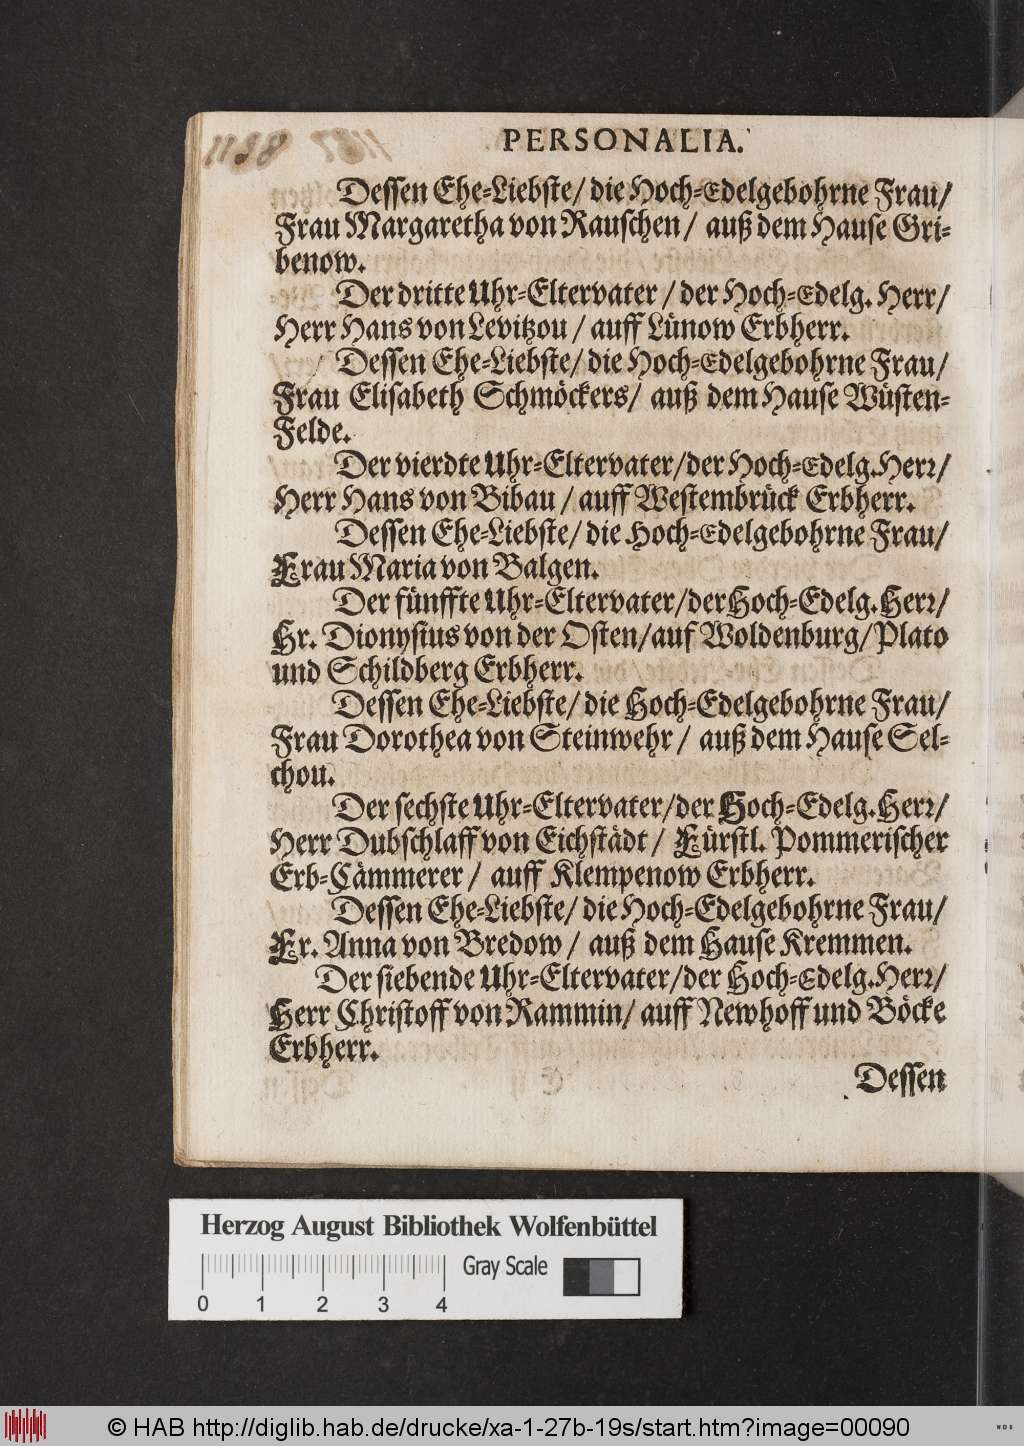 PERSONALIA.
Dessen Ehe-Liebste/ die Hoch-Edelgebohrne Frau/
Frau Margaretha von Rauschen/ auß dem Hause Gri-
benow.
Der dritte Uhr-Eltervater/ der Hoch-Edelg. Herr/
Herr Hans von Levitzou/ auff Lünow Erbherr.
Dessen Ehe-Liebste/ die Hoch-Edelgebohrne Frau/
Frau Elisabeth Schmöckers/ auß dem Hause Wüsten-
Felde.
Der vierdte Uhr-Eltervater/der Hoch-Edelg.Herr/
Herr Hans von Bibau/ auff Westembrück Erbherr.
Dessen Ehe-Liebste/ die Hoch-Edelgebohrne Frau/
Frau Maria von Balgen.
Der fünffte Uhr-Eltervater/der Hoch-Edelg.Herr/
Hr. Dionysius von der Osten/auf Woldenburg/Plato
und Schildberg Erbherr.
Dessen Ehe-Liebste/ die Hoch-Edelgebohrne Frau/
Frau Dorothea von Steinwehr/ auß dem Hause Sel-
chou.
Der sechste Uhr-Eltervater/der Hoch-Edelg.Herr/
Herr Dubschlaff von Eichstädt/ Fürstl. Pommerischer
Erb-Cämmerer/ auff Klempenow Erbherr.
Dessen Ehe-Liebste/ die Hoch-Edelgebohrne Frau/
Fr. Anna von Bredow/ auß dem Hause Kremmen.
Der siebende Uhr-Eltervater/der Hoch-Edelg.Herr/
Herr Christoff von Rammin/ auff Newhoff und Böcke
Erbherr.
Dessen
Herzog August Bibliothek Wolfenbüttel
Gray Scale
0 1 2 3 4
© HAB http://diglib.hab.de/drucke/xa-1-27b-19s/start.htm?image=00090